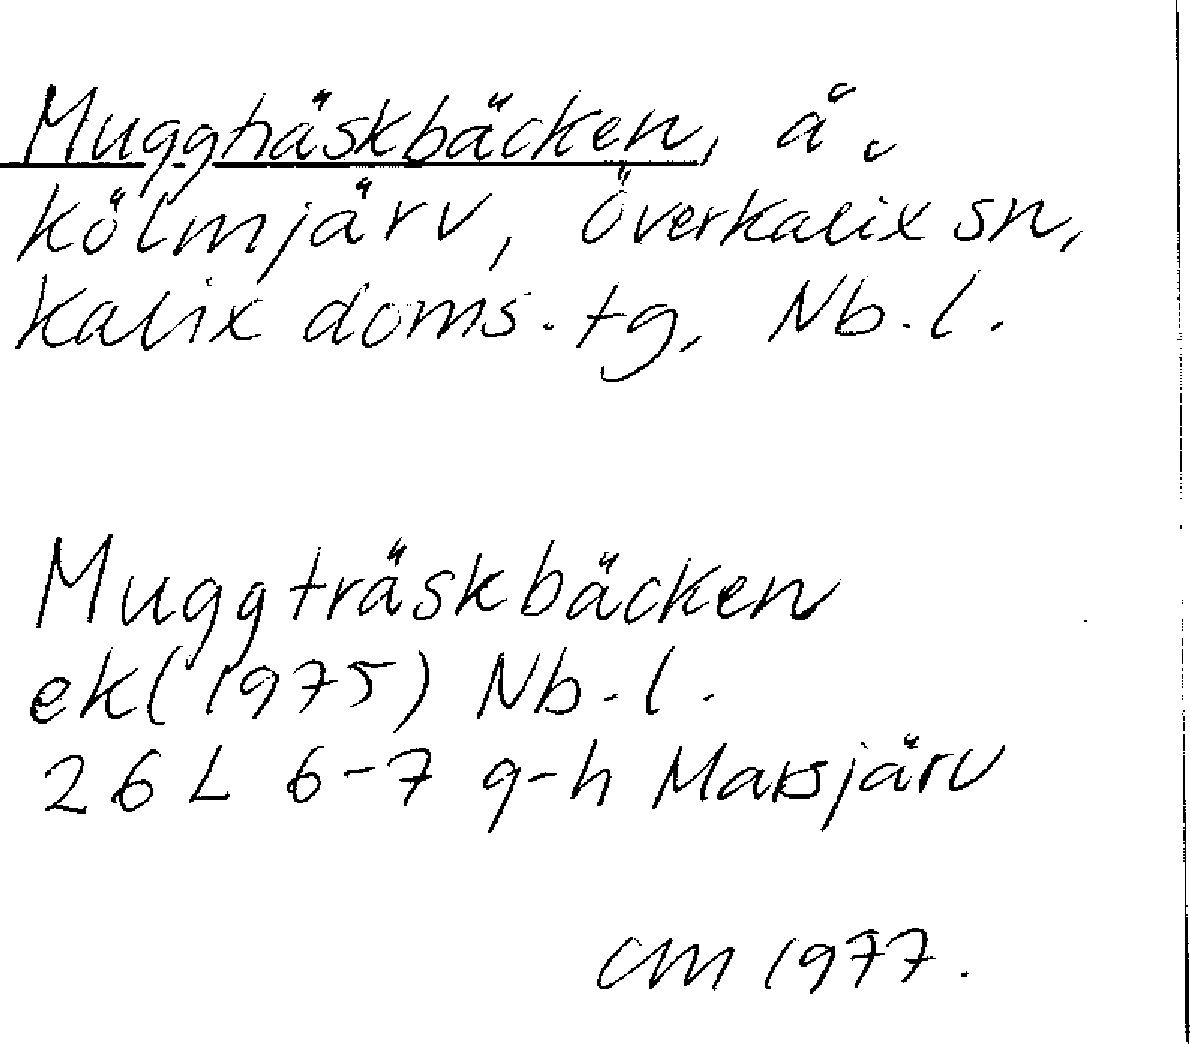 Muggträskbäcken, å,
Kölmjärv, Överkalix sn,
Kalix doms. tg, Nb. l.
Muggträskbäcken
ek (1975) Nb. l.
26 L 6-7 g-h Marsjärv
CM 1977.